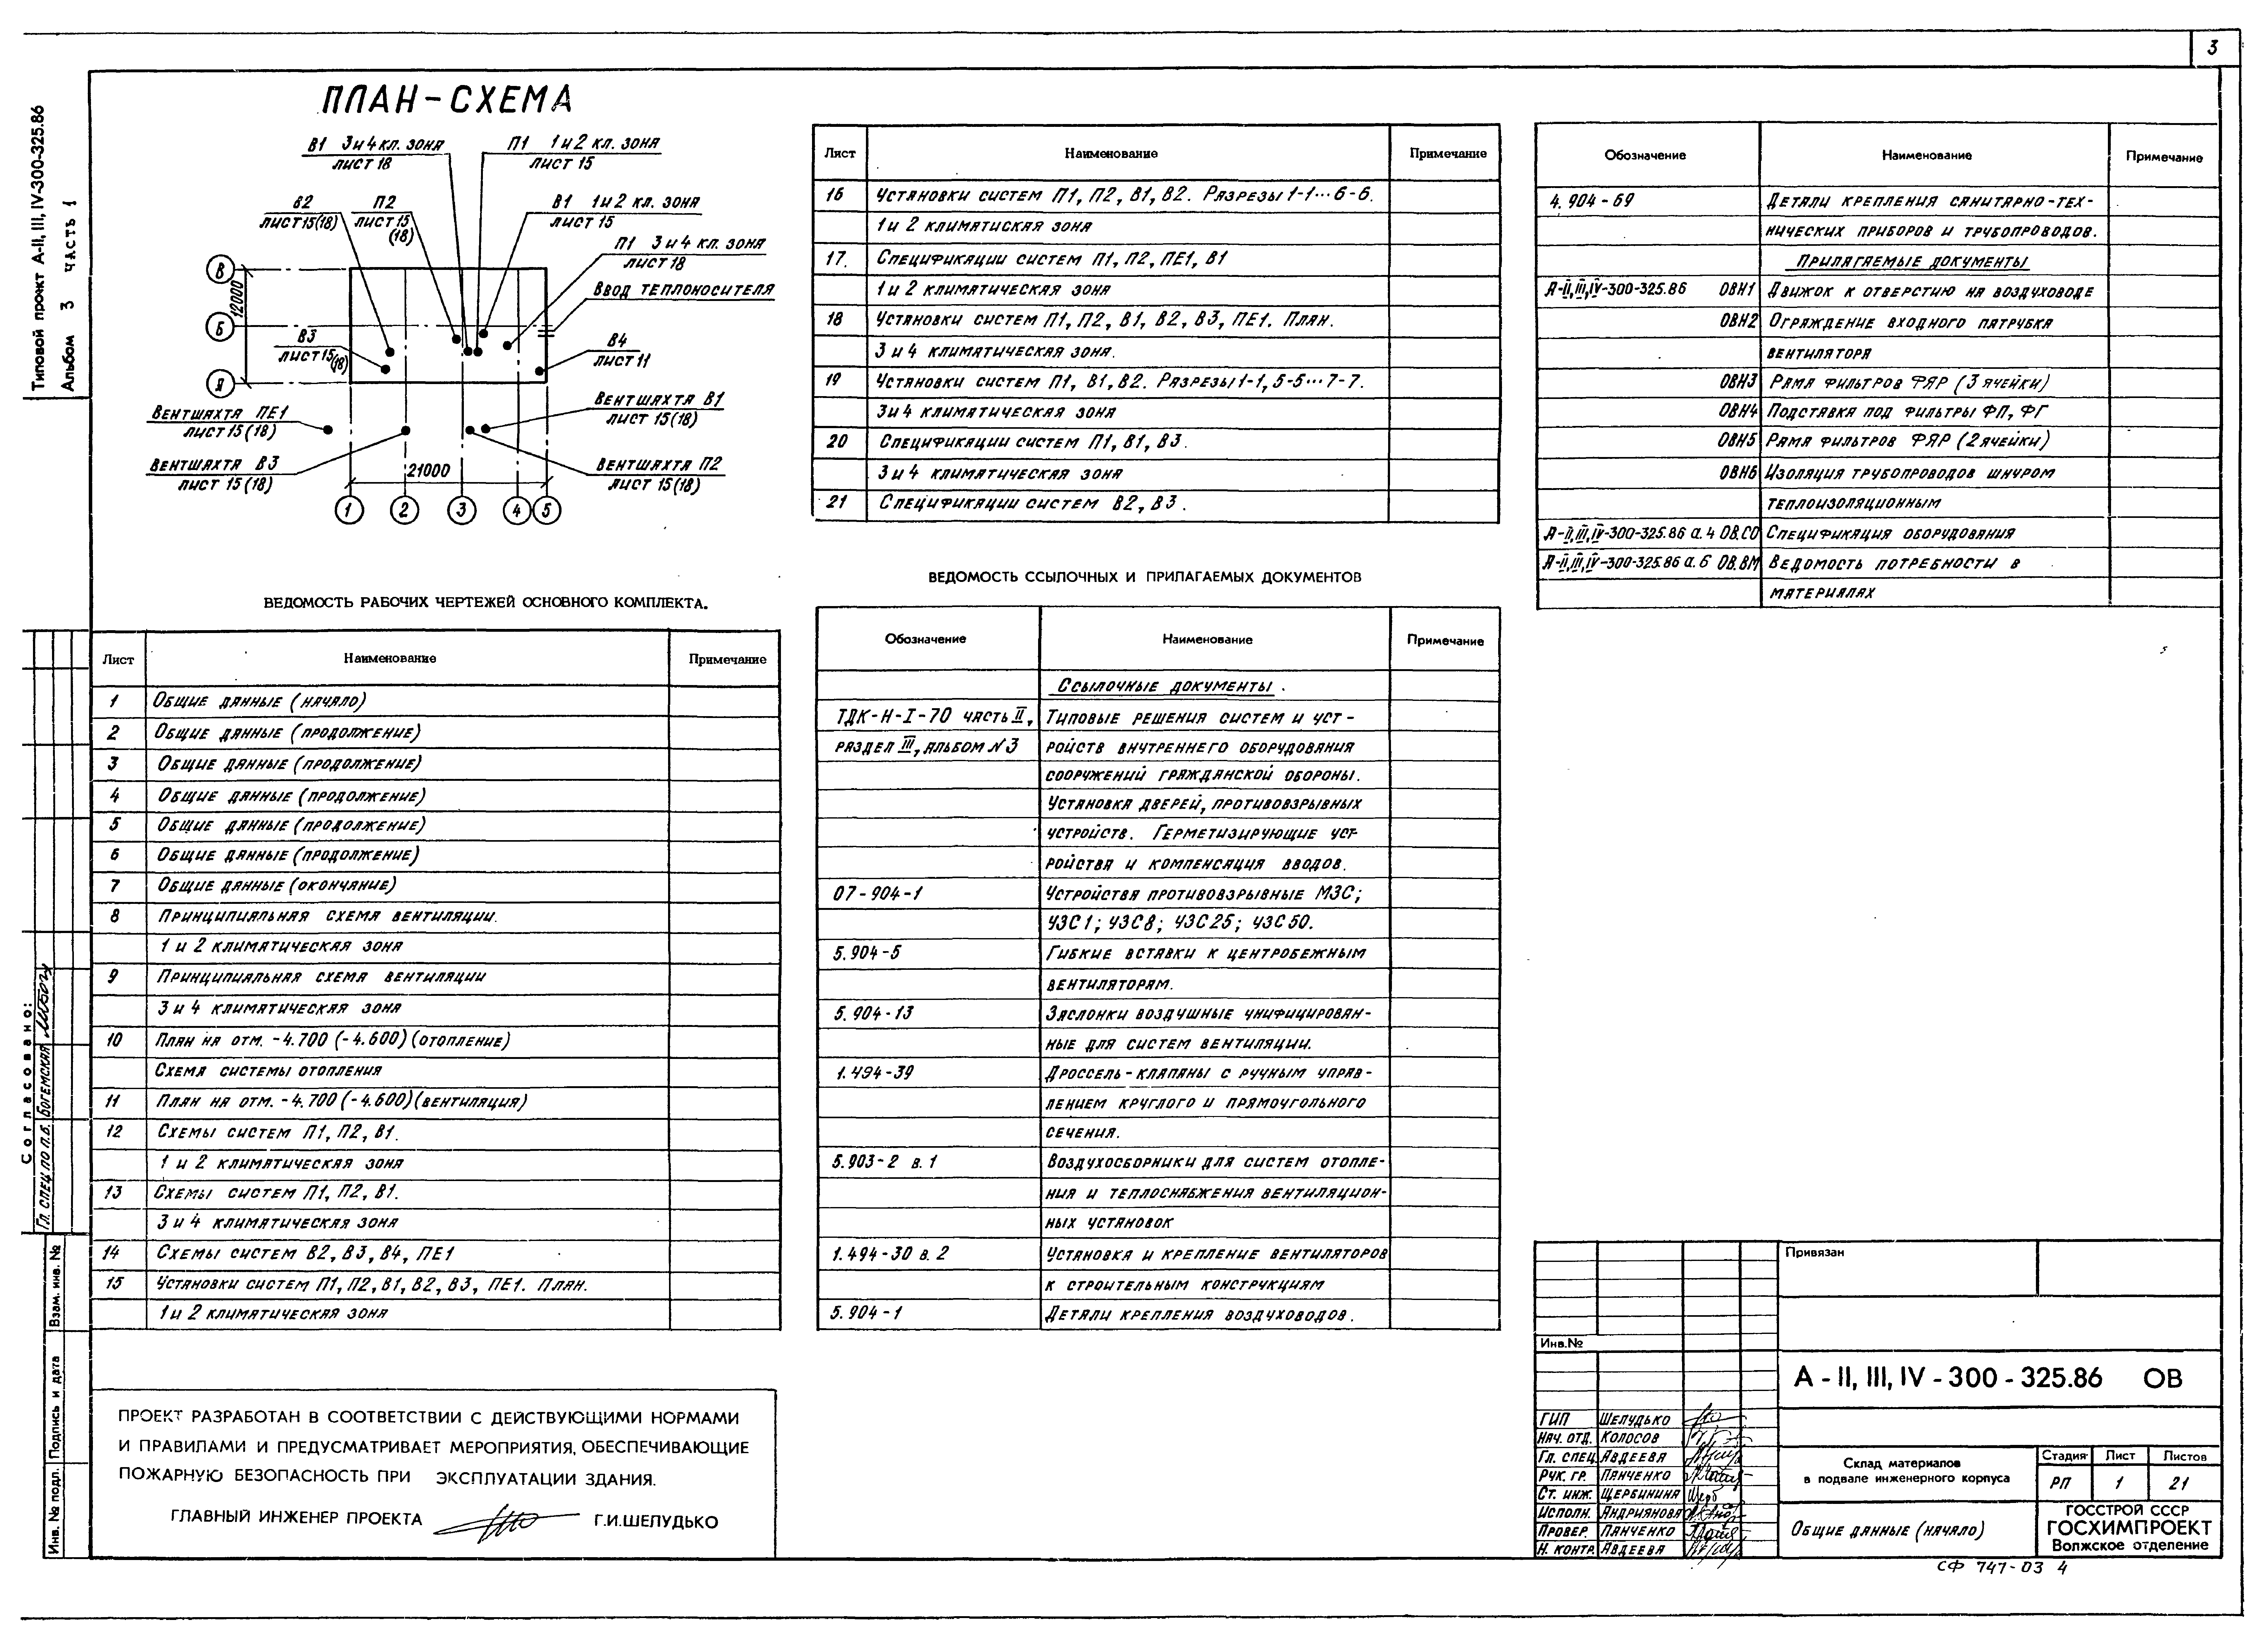 3
Типовой проект А-II, III, IV-300-325.86
Альбом 3 часть 1
ПЛАН-СХЕМА
В1 3 и 4 кл. зона
лист 18
П1 1 и 2 кл. зона
лист 15
В2
лист 15(18)
П2
лист 15
(18)
В1 1 и 2 кл. зона
лист 15
П1 3 и 4 кл. зона
лист 18
Ввод теплоносителя
В
Б
А
12000
В3
лист 15(18)
В4
лист 11
Вентшахта ПЕ1
лист 15(18)
Вентшахта В1
лист 15(18)
Вентшахта В3
лист 15(18)
Вентшахта П2
лист 15(18)
21000
1 2 3 4 5
ВЕДОМОСТЬ РАБОЧИХ ЧЕРТЕЖЕЙ ОСНОВНОГО КОМПЛЕКТА.
Лист Наименование Примечание
1 Общие данные (начало)
2 Общие данные (продолжение)
3 Общие данные (продолжение)
4 Общие данные (продолжение)
5 Общие данные (продолжение)
6 Общие данные (продолжение)
7 Общие данные (окончание)
8 Принципиальная схема вентиляции.
1 и 2 климатическая зона
9 Принципиальная схема вентиляции
3 и 4 климатическая зона
10 План на отм. -4.700 (-4.600) (отопление)
Схема системы отопления
11 План на отм. -4.700 (-4.600) (вентиляция)
12 Схемы систем П1, П2, В1.
1 и 2 климатическая зона
13 Схемы систем П1, П2, В1.
3 и 4 климатическая зона
14 Схемы систем В2, В3, В4, ПЕ1
15 Установки систем П1, П2, В1, В2, В3, ПЕ1. План.
1 и 2 климатическая зона
Лист Наименование Примечание
16 Установки систем П1, П2, В1, В2. Разрезы 1-1...6-6.
1 и 2 климатиская зона
17. Спецификации систем П1, П2, ПЕ1, В1
1 и 2 климатическая зона
18 Установки систем П1, П2, В1, В2, В3, ПЕ1. План.
3 и 4 климатическая зона.
19 Установки систем П1, В1, В2. Разрезы 1-1, 5-5...7-7.
3 и 4 климатическая зона
20 Спецификации систем П1, В1, В3.
3 и 4 климатическая зона
21 Спецификации систем В2, В3.
ВЕДОМОСТЬ ССЫЛОЧНЫХ И ПРИЛАГАЕМЫХ ДОКУМЕНТОВ
Обозначение Наименование Примечание
Ссылочные документы.
ТДК-Н-I-70 часть II, Типовые решения систем и уст-
раздел III, альбом N3 ройств внутреннего оборудования
сооружений гражданской обороны.
Установка дверей, противовзрывных
устройств. Герметизирующие уст-
ройства и компенсация вводов.
07-904-1 Устройства противовзрывные МЗС;
УЗС1; УЗС8; УЗС25; УЗС50.
5.904-5 Гибкие вставки к центробежным
вентиляторам.
5.904-13 Заслонки воздушные унифицирован-
ные для систем вентиляции.
1.494-39 Дроссель-клапаны с ручным управ-
лением круглого и прямоугольного
сечения.
5.903-2 в.1 Воздухосборники для систем отопле-
ния и теплоснабжения вентиляцион-
ных установок
1.494-30 в.2 Установка и крепление вентиляторов
к строительным конструкциям
5.904-1 Детали крепления воздуховодов.
Обозначение Наименование Примечание
4.904-69 Детали крепления санитарно-тех-
нических приборов и трубопроводов.
Прилагаемые документы
А-II,III,IV-300-325.86 ОВН1 Движок к отверстию на воздуховоде
ОВН2 Ограждение входного патрубка
вентилятора
ОВН3 Рама фильтров ФЯР (3 ячейки)
ОВН4 Подставка под фильтры ФП, ФГ
ОВН5 Рама фильтров ФЯР (2 ячейки)
ОВН6 Изоляция трубопроводов шнуром
теплоизоляционным
А-II,III,IV-300-325.86 а.4 ОВ.СО Спецификация оборудования
А-II,III,IV-300-325.86 а.6 ОВ.ВМ Ведомость потребности в
материалах
ПРОЕКТ РАЗРАБОТАН В СООТВЕТСТВИИ С ДЕЙСТВУЮЩИМИ НОРМАМИ
И ПРАВИЛАМИ И ПРЕДУСМАТРИВАЕТ МЕРОПРИЯТИЯ, ОБЕСПЕЧИВАЮЩИЕ
ПОЖАРНУЮ БЕЗОПАСНОСТЬ ПРИ ЭКСПЛУАТАЦИИ ЗДАНИЯ.
ГЛАВНЫЙ ИНЖЕНЕР ПРОЕКТА Г.И.ШЕЛУДЬКО
Согласовано:
Гл. спец по п.в. Богемская
Взам. инв. №
Подпись и дата
Инв. № подл.
Привязан
Инв.№
А - II, III, IV - 300 - 325.86 ОВ
ГИП Шелудько
Нач. отд. Колосов
Гл. спец Авдеева
Рук. гр. Панченко
Ст. инж. Щербинина
Исполн. Андриянова
Провер. Панченко
Н. контр. Авдеева
Склад материалов
в подвале инженерного корпуса
Стадия Лист Листов
РП 1 21
Общие данные (начало)
ГОССТРОЙ СССР
ГОСХИМПРОЕКТ
Волжское отделение
СФ 747-03 4